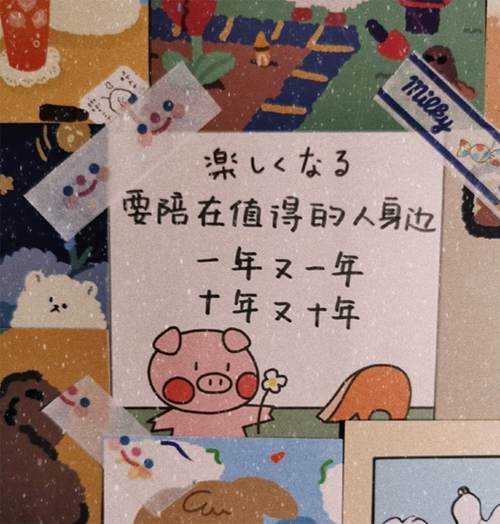 Milky
楽しくなる
要陪在值得的人身边
一年又一年
十年又十年